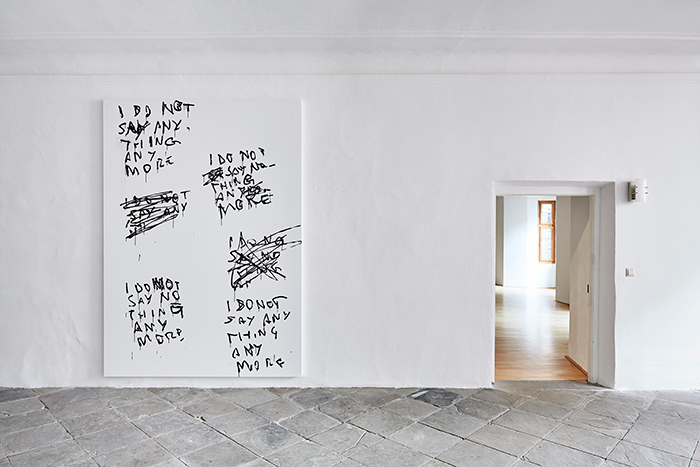 I DO NOT
SAY ANY-
THING
ANY
MORE
I DO NOT
SAY ANY
I DO NOT
SAY NO
THING
ANY
MORE.
I DO NOT
SAY NO-
THING
ANY
MORE
I DO NO
SAY NO
I DO NOT
SAY ANY
THING
ANY
MORE